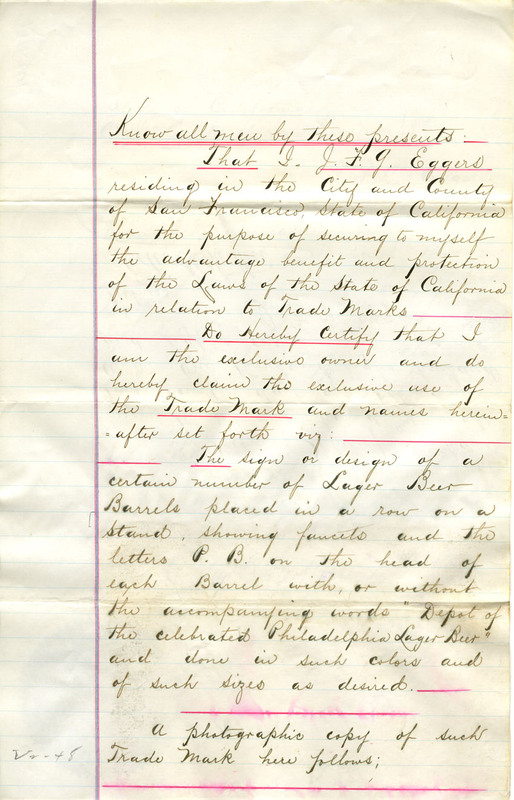 Know all men by these presents:
That I. J. F. G. Eggers
residing in the City and County
of San Francisco, State of California
for the purpose of securing to myself
the advantage benefit and protection
of the Laws of the State of California
in relation to Trade Marks
Do Hereby Certify that I
am the exclusive owner and do
hereby claim the exclusive use of
the Trade Mark and names herein=
=after set forth viz:
The sign or design of a
certain number of Lager Beer
Barrels placed in a row on a
Stand, showing faucets and the
letters P. B. on the head of
each Barrel with, or without
the accompanying words "Depot of
the celebrated Philadelphia Lager Beer"
and done in such colors and
of such sizes as desired.
A photographic copy of such
Trade Mark here follows;